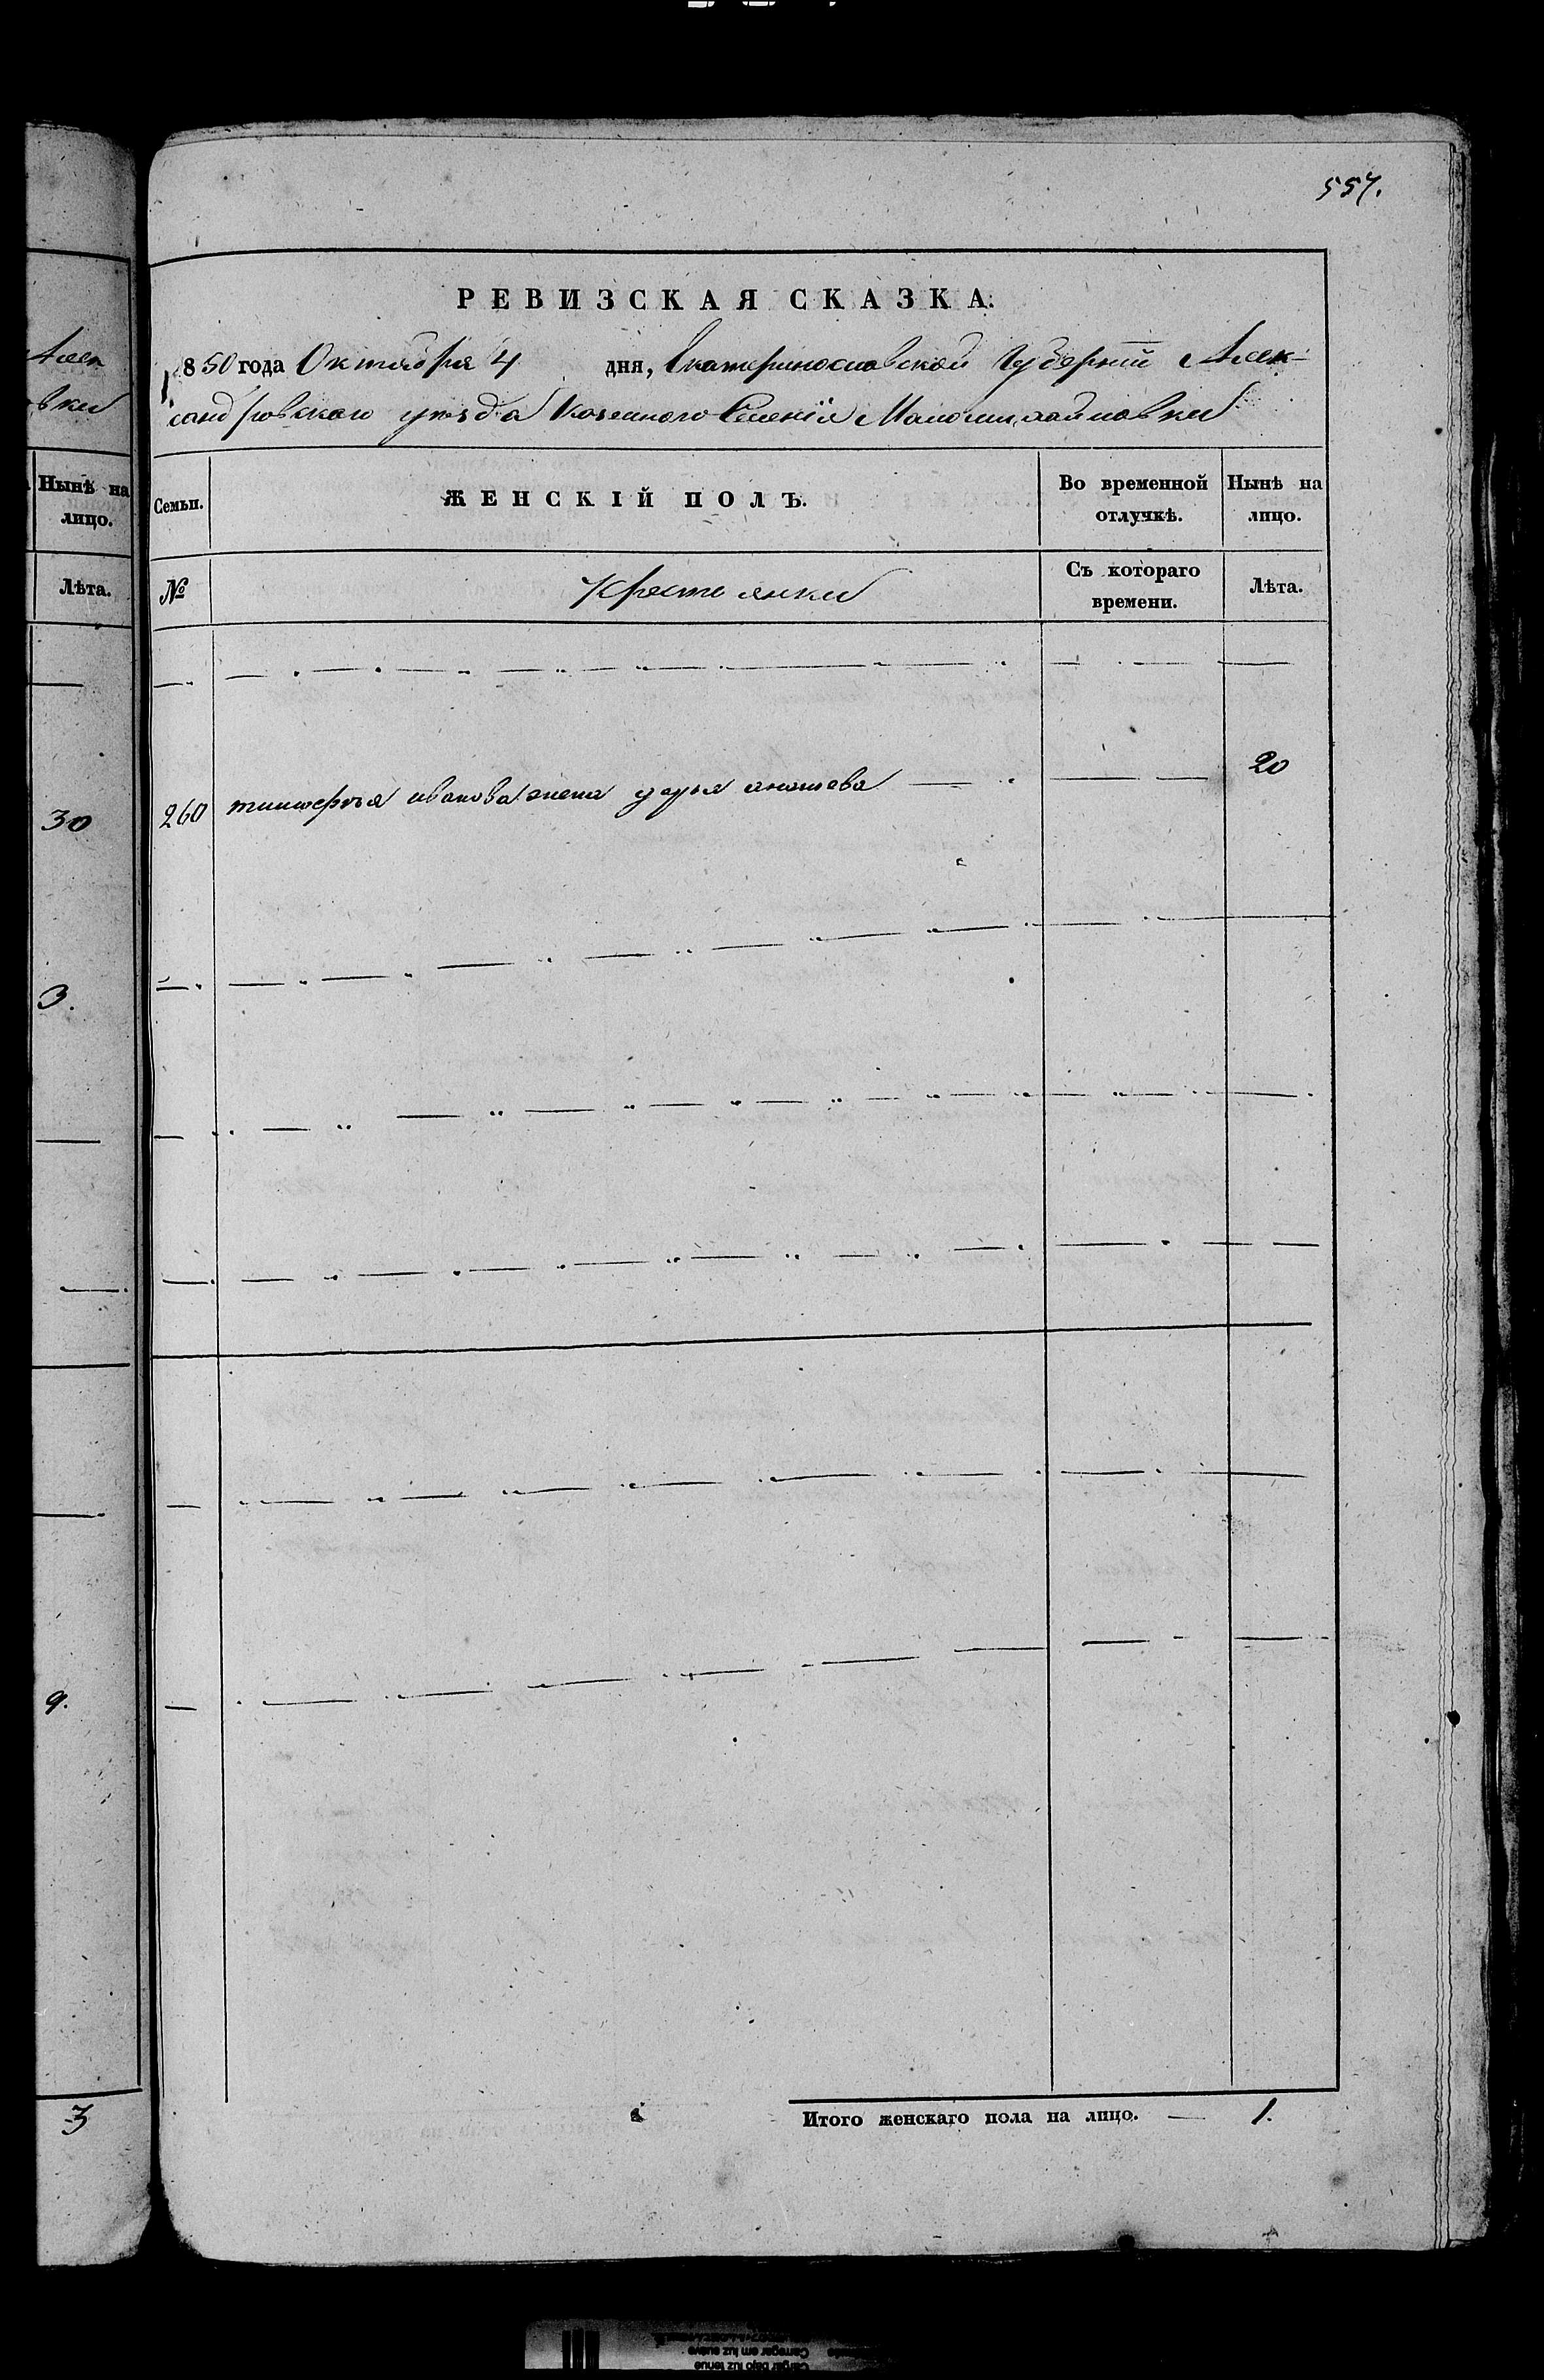 557.
РЕВИЗСКАЯ СКАЗКА.
1850 года Октября 4 дня, Екатеринославской Губернiи Алек-
сандровского уѣзда Казенного Селенiя Маломихайловки
Алек
вки
Нынѣ на
лицо.
Лѣта.
Семьи.
ЖЕНСКІЙ ПОЛЪ.
Во временной
отлучкѣ.
Нынѣ на
лицо.
№
Крестьянки
Съ котораго
времени.
Лѣта.
30
260 тимофѣя иванова жена дарья 20
3.
9.
3
Итого женскаго пола на лицо. — 1.